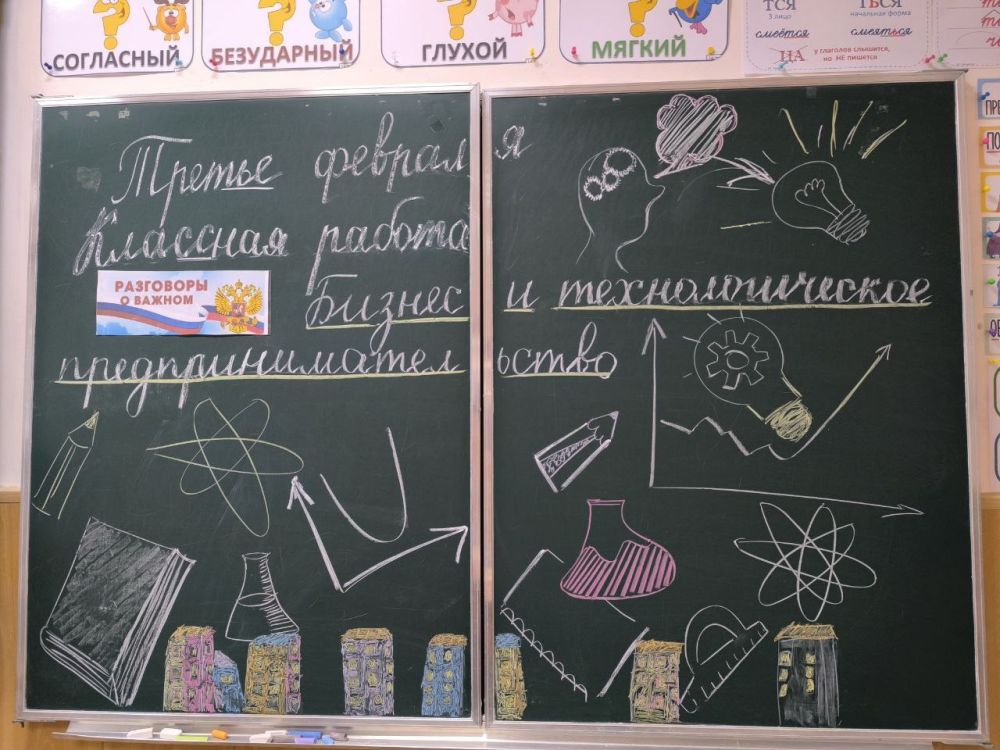 СОГЛАСНЫЙ
БЕЗУДАРНЫЙ
ГЛУХОЙ
МЯГКИЙ
ТСЯ ТЬСЯ
3 лицо начальная форма
смеётся смеяться
НА у глаголов слышится,
но НЕ пишется
Третье февраля
Классная работа
РАЗГОВОРЫ
О ВАЖНОМ
Бизнес и технологическое
предпринимательство